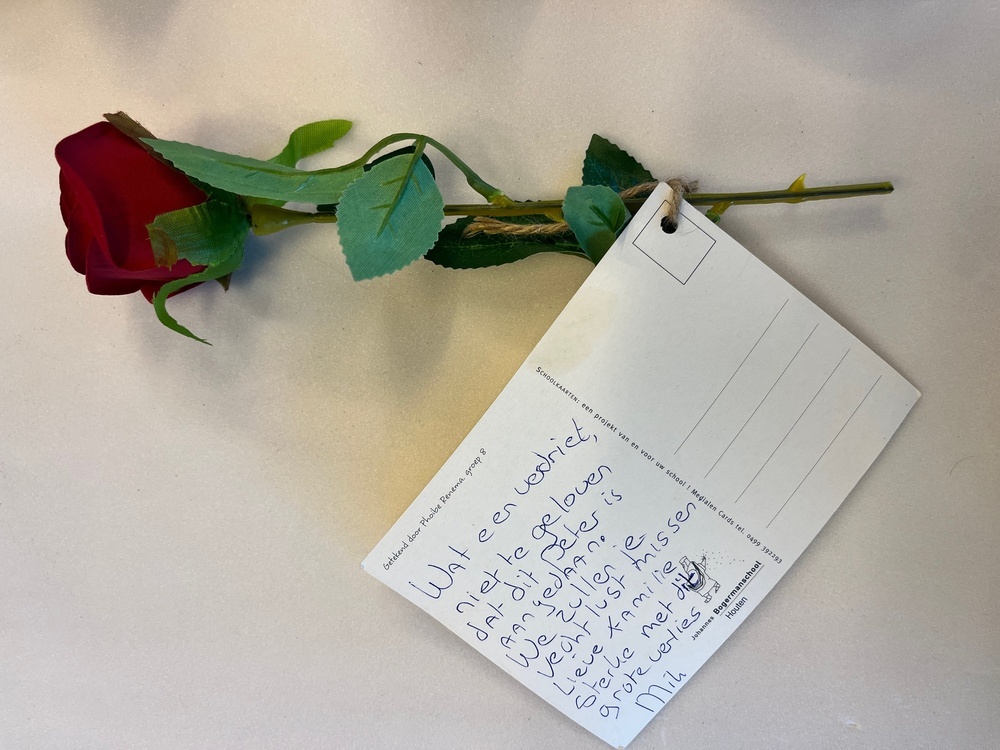 Getekend door Phoibe Renema groep 8
Wat een verdriet,
niet te geloven
dat dit Peter is
aangedaan.
We zullen je
vechtlust missen
Lieve familie
Sterke met dit
grote verlies
SCHOOLKAARTEN: een projekt van en voor uw school ! Medialen Cards tel. 0499 392293
Johannes Bogermanschool
Houten